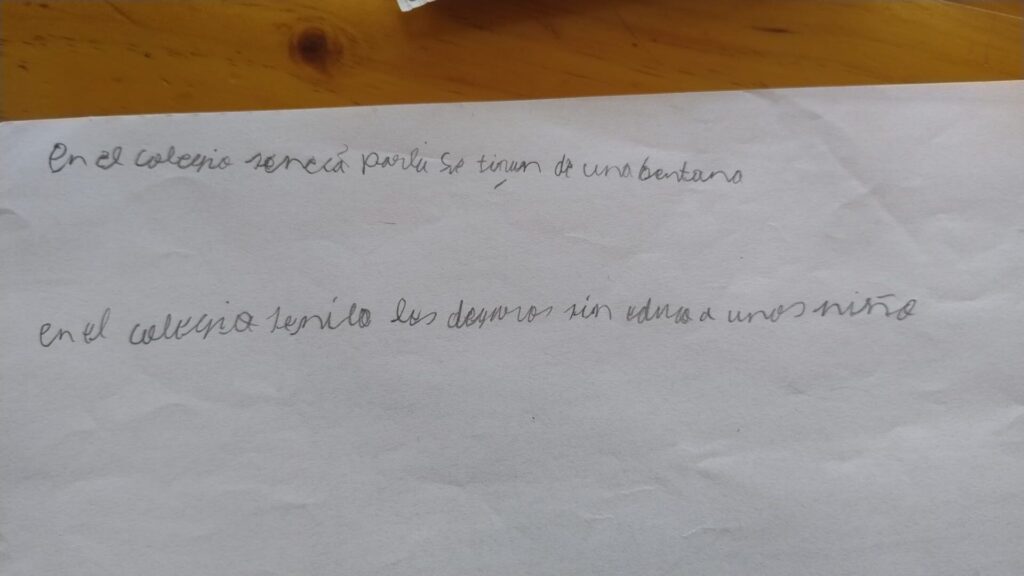 en el colegio seneca parla se tiran de una bentana
en el colegio senico los degaros sin educa a unos niño